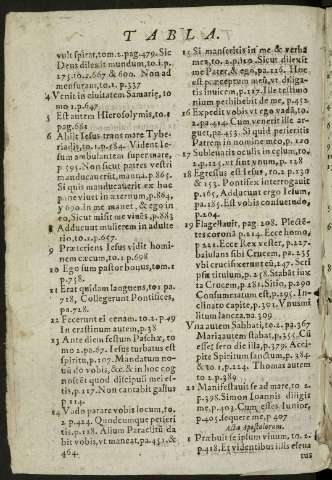 TABLA.
vult spirat, tom.2.pag.479. Sic
Deus dilexit mundum, to.1.p.
273.to.2.667 & 600. Non ad
mensuram, to.1. p.337
4 Venit in ciuitatem Samariæ, to
mo 1.p.647
5 Est autem Hierosolymis, to.1
pag.681
6 Abijt Iesus trans mare Tybe-
riadis, to.1.p.484. Vident Ie-
sum ambulantem super mare,
p.595. Non sicut patres vestri
manducauerūt, manna, p.863.
Si quis manducauerit ex hoc
pane viuet in æternum, p.864.
y 690. In me manet, & ego in
eo, Sicut misit me viuēs, p.883
8 Adducunt mulierem in adulte
rio, to.1.p.657.
9 Præteriens Iesus vidit homi-
nem cæcum, to.1.p.698
10 Ego sum pastor bonus, tom.1
p.758.
11 Erat quidam languens, to.1 pa.
718, Collegerunt Pontifices,
pa.728.
12 Fecerunt ei cenam. to.2. p.49
In crastinum autem, p.38
13 Ante diem festum Paschæ, to
mo 2.pa.67. Iesus turbatus est
spiritu, p.107. Mandatum no-
uū do vobis, &c. & in hoc cog
noscēt quod discipuli mei es-
tis, p.117. Non cantabit gallus
p 114.
14 Vado parare vobis locum, to.
2. p.424. Quodcumque petieri
tis, p.118. Alium Paraclitū da
bit vobis, vt maneat, pa.451, &
464.
15 Si manseritis in me & verba
mea, to. 2.p.120. Sicut dilexit
me Pater, & ego, pa.116. Hoc
est præceptum meū, vt diliga-
tis inuicem, p.117. Ille testimo
nium perhibebit de me, p.452.
16 Expedit vobis vt ego vadā, to.
2.pa.434. Cum venerit ille ar-
guet, pa.453. Si quid petieritis
Patrem in nomine meo, p.120
17 Subleuatis oculis in cęlum, to.
2.p.125. vt sint vnum, p.128
18 Egressus est Iesus, to.2 p.130
& 153. Pontifex interrogauit
p.165. Adducunt ergo Iesum,
pa.185. Est vobis consuetudo,
p.204.
19 Flagellauit, pag. 208. Plectē-
tes coronā p.214. Ecce homo,
p.221. Ecce Rex vester, p.227.
baiulans sibi Crucem, pa.235
vbi crucifixerunt eū, 247. Scri
psit titulum, p.258. Stabāt iux
ta Crucem, p.281. Sitio, p.290
Consumatum est, p.295. In-
clinato capite, p.301. Vnus mi
litum lancea pa.309
Vna autem Sabbati, to.2. pa.367
Maria autem stabat, p.355. Cū
esset sero die illa, p.379. Acci-
pite Spiritum sanctum, p.384
& to 1 p.224. Thomas autem
to 2.p.389.
21 Manifestauit se ad mare, to 2.
p.398. Simon Ioannis diligis
me, p.403. Cum esses Iunior,
p.405. sequere me, p 407
Acta Apostolorum.
1 Præbuit se ipsum viuum, to 2.
p.418. Et videntibus illis eleua
tus